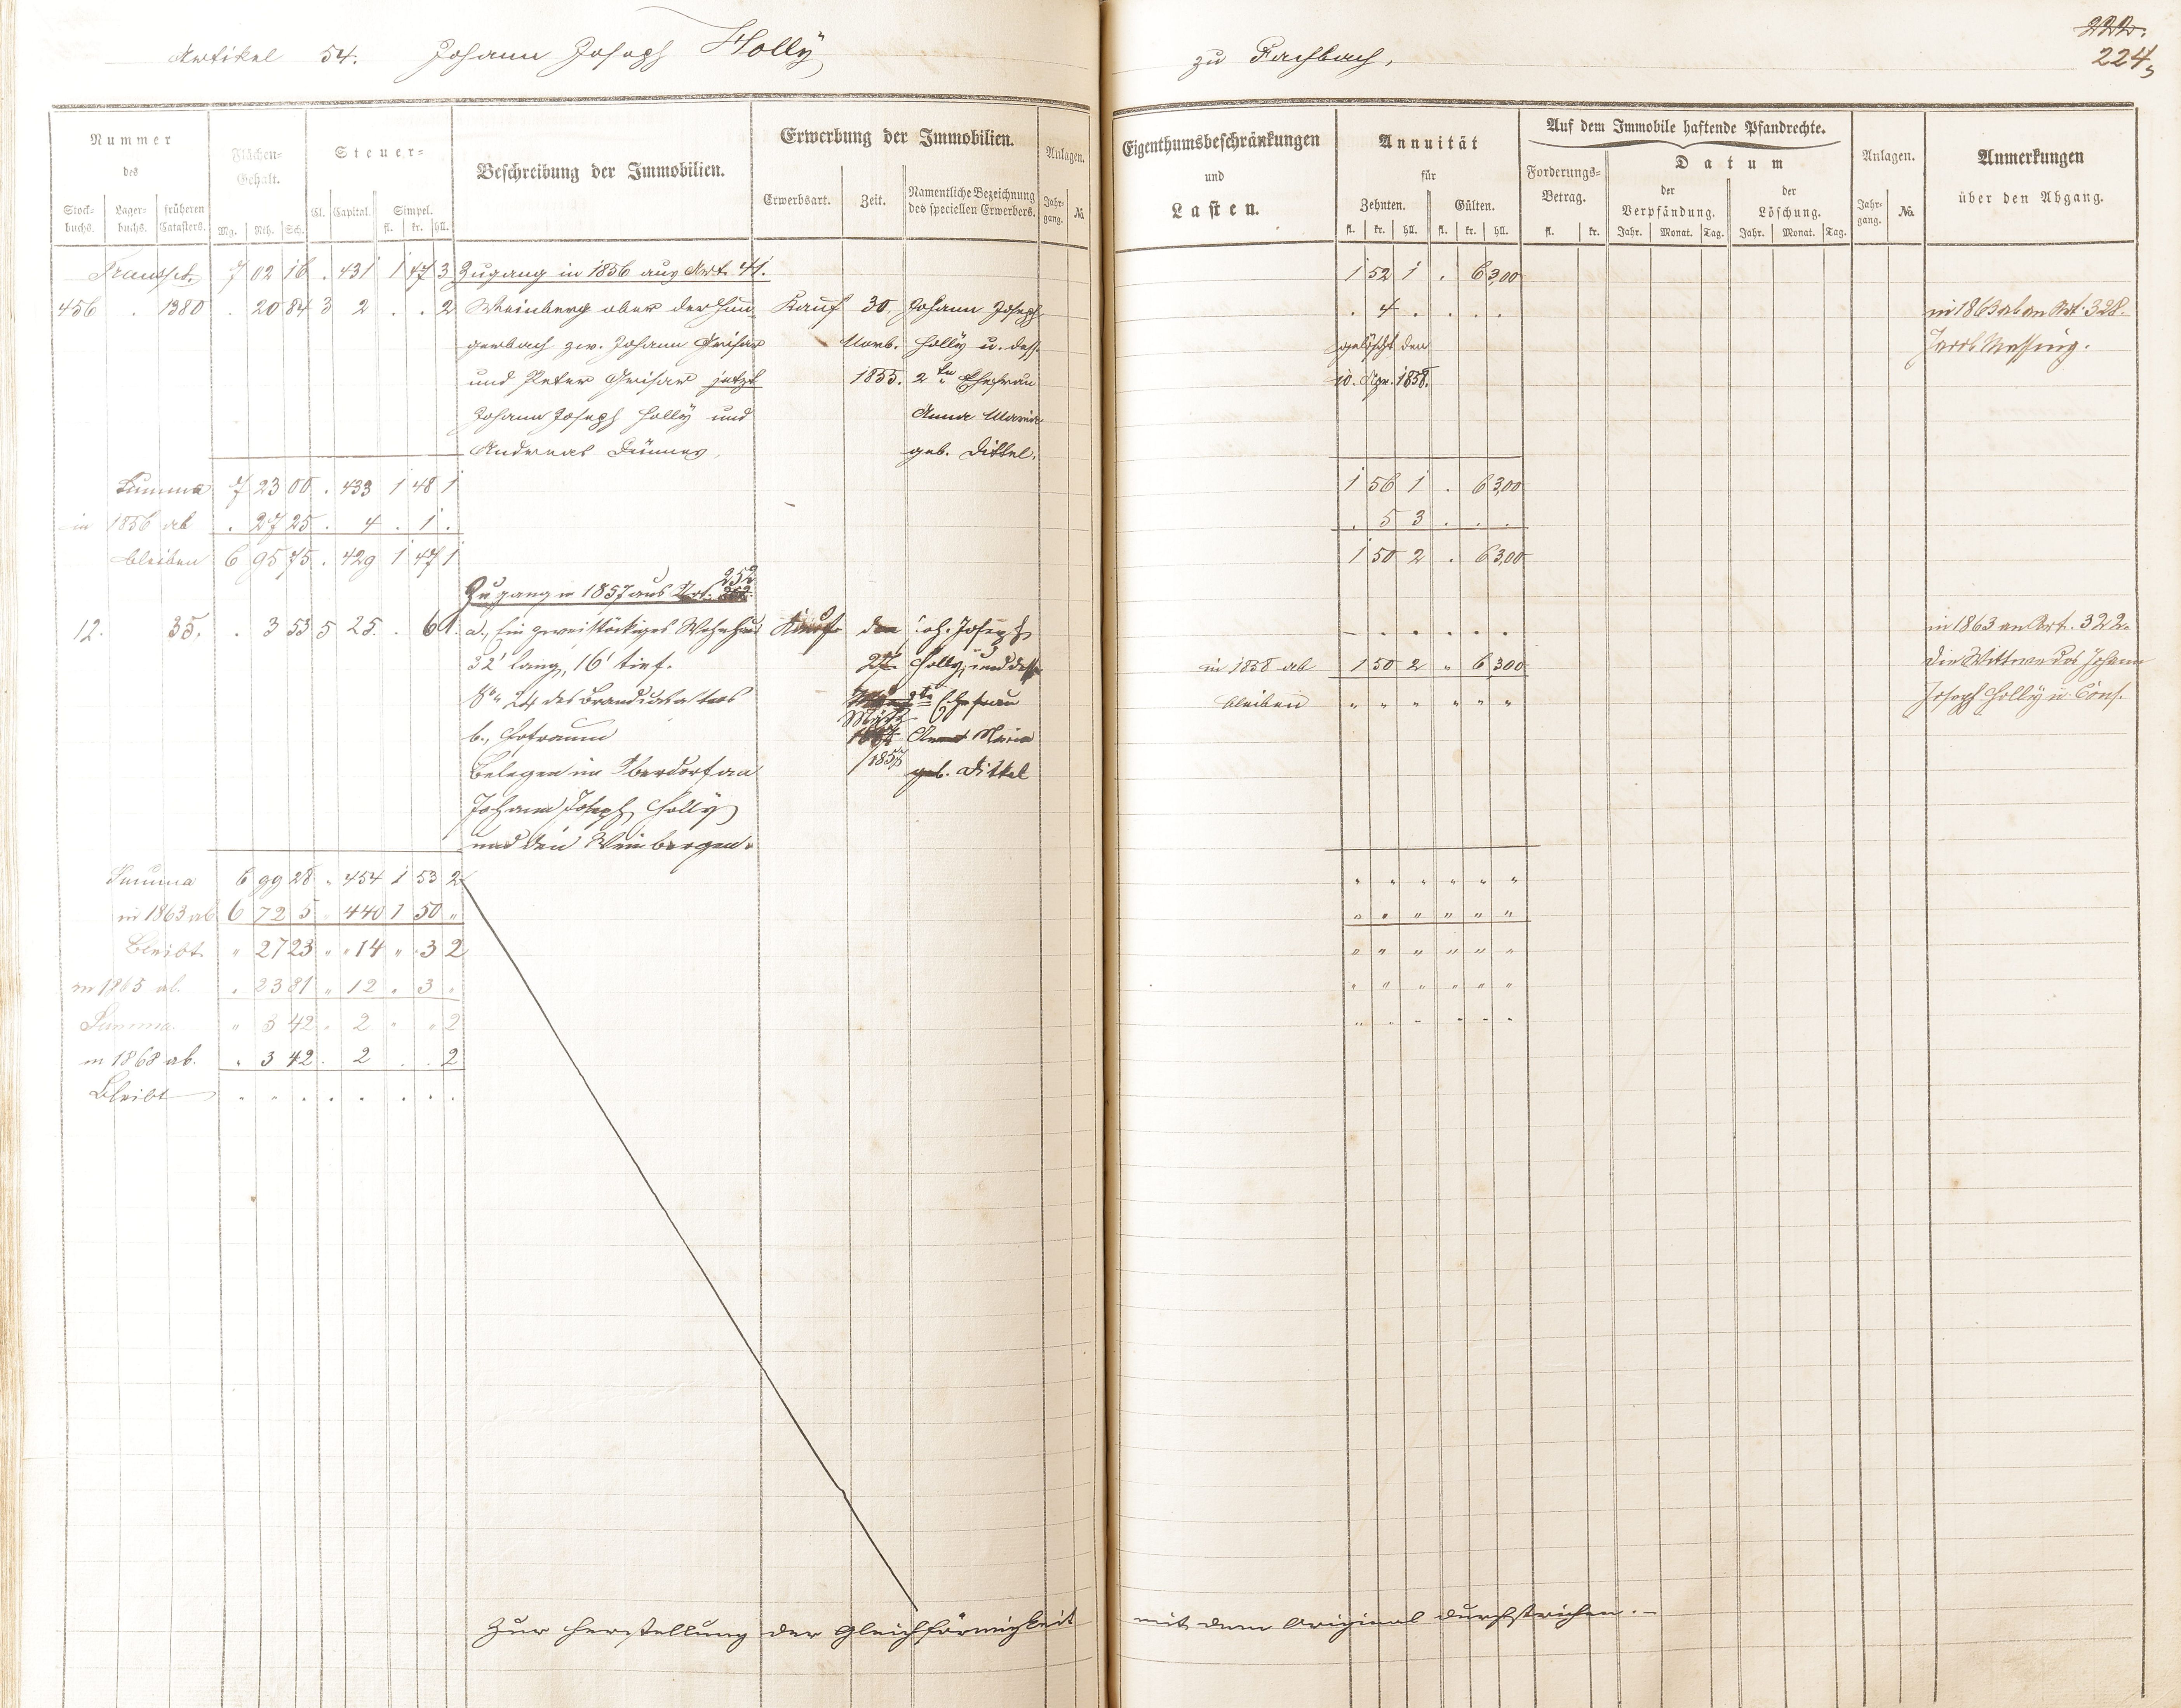 Artikel 54. Johann Joseph Holly
zu Fachbach,
222.
224,
Nummer des
Stock-buchs. Lager-buchs. früheren Catasters.
Flächen-Gehalt.
Mg. Rth. Sch.
Steuer-
Cl. Capital. Simpel. fl. kr. hll.
Beschreibung der Immobilien.
Erwerbung der Immobilien.
Erwerbsart. Zeit. Namentliche Bezeichnung des speciellen Erwerbers.
Anlagen. Jahr-gang. No.
Eigenthumsbeschränkungen und Lasten.
Annuität für
Zehnten. fl. kr. hll. Gülten. fl. kr. hll.
Auf dem Immobile haftende Pfandrechte.
Forderungs-Betrag. fl. kr.
Datum
der Verpfändung. Jahr. Monat. Tag.
der Löschung. Jahr. Monat. Tag.
Anlagen. Jahr-gang. No.
Anmerkungen über den Abgang.
Transpt. 7 02 16 . 431 1 47 3 Zugang in 1856 aus Art. 41. 1 52 1 . 6 3,00
456 . 1380 . 20 84 3 2 . . 2 Weinberg ober der Hun- Kauf 30. Johann Joseph . 4 . . . . in 1863 ab an Art. 328.
gerbach zw. Johann Grisar Novb. Holly u. dess. gelöscht den Jacob Massing.
und Peter Grisar jetzt 1855. 2te Ehefrau 10. Apr. 1858.
Johann Joseph Holly und Anna Maria
Andreas geb. Dittel.
Summa 7 23 00 . 433 1 48 1 1 56 1 . 6 3,00
in 1856 ab . 27 25 . 4 . 1 . . 5 3 . . .
bleiben 6 95 75 . 429 1 47 1 1 50 2 . 6 3,00
Zugang in 1857 aus Art. 252
12. 35. . 3 53 5 25 . 6 1. a., Ein zweistöckiges Wohnhaus Kauf den Joh. Joseph . . . . . in 1863 an Art. 322.
32' lang, 16' tief. 27. Holly, und dess. in 1858 ab 1 50 2 " 6 3,00 die Wittwe des Johann
No 24 des Brandcatasters März 2te Ehefrau bleiben " " " " " " Joseph Holly u. Cons.
b., Hofraum Anna Maria
Belegen im Oberdorf an 1857 geb. Dittel
Johann Joseph Holly
und den Weinbergen.
Summa 6 99 28 " 454 1 53 2 " " " " " "
in 1863 ab 6 72 5 " 440 1 50 " " " " " " "
Bleibt " 27 23 " " 14 " " 3 2 " " " " " "
in 1865 ab. " 23 81 " 12 " 3 " " " " " " "
Summa. " 3 42 " 2 " " 2 " " " " " "
in 1868 ab. " 3 42 . 2 . . 2
Bleibt . . . . . . . .
Zur Herstellung der Gleichförmigkeit mit dem Original durchstrichen. –